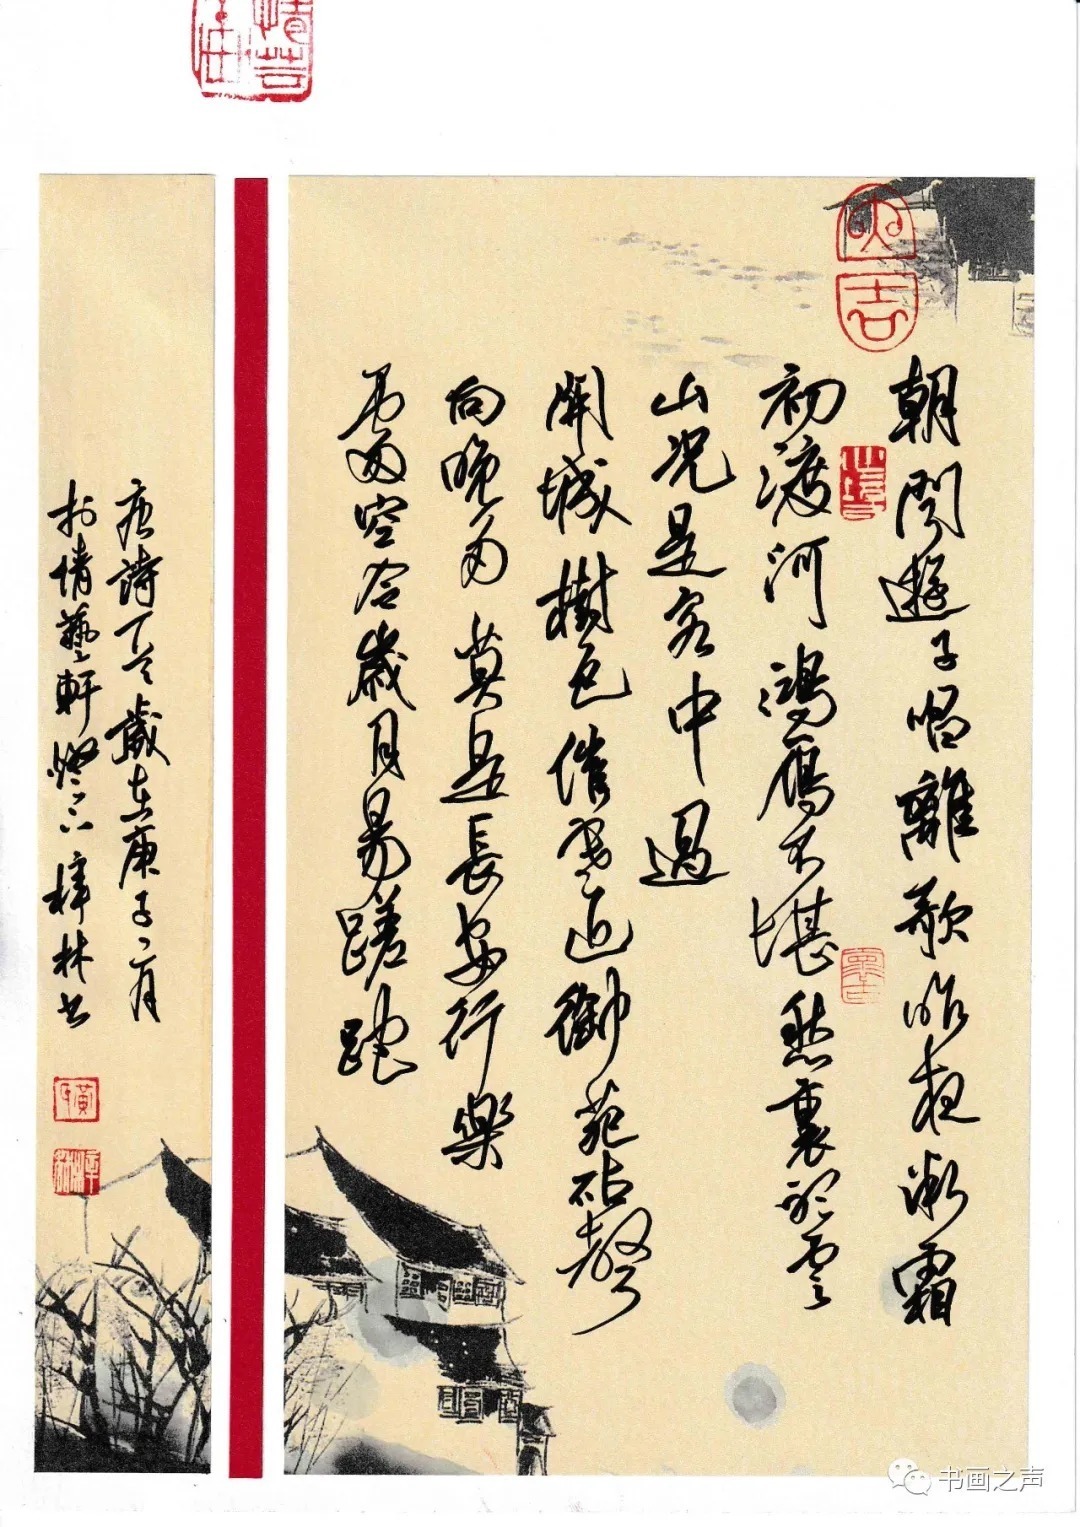 大吉
朝聞遊子唱離歌昨夜微霜
初渡河鴻雁不堪愁裏聽雲
山況是客中過
關城樹色催寒近御苑砧聲
向晚多莫是長安行樂
處空令歲月易蹉跎
唐詩一首歲在庚子二月
於情藝軒燈下樟林书
书画之声